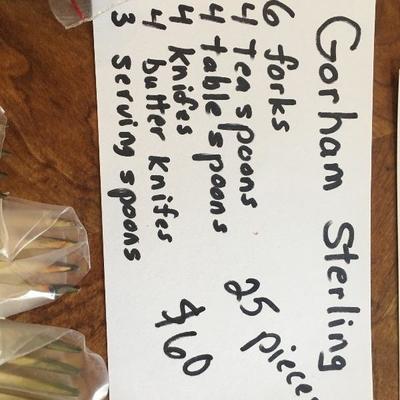 Gorham Sterling
6 forks
4 teaspoons
4 table spoons
4 knifes
4 butter knifes
3 serving spoons
25 pieces
$60